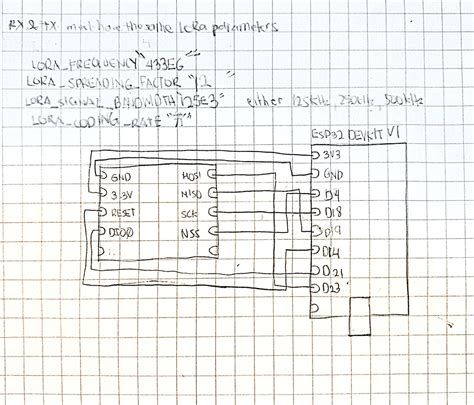 RX & TX must have the same LoRa parameters
LORA_FREQUENCY "433E6"
LORA_SPREADING_FACTOR "12"
LORA_SIGNAL_BANDWIDTH "125E3" either 125kHz, 250kHz, 500kHz
LORA_CODING_RATE
ESP32 DEVKIT V1
GND
3.3V
RESET
DIO0
MOSI
MISO
SCK
NSS
3V3
GND
D4
D18
D19
D14
D21
D23